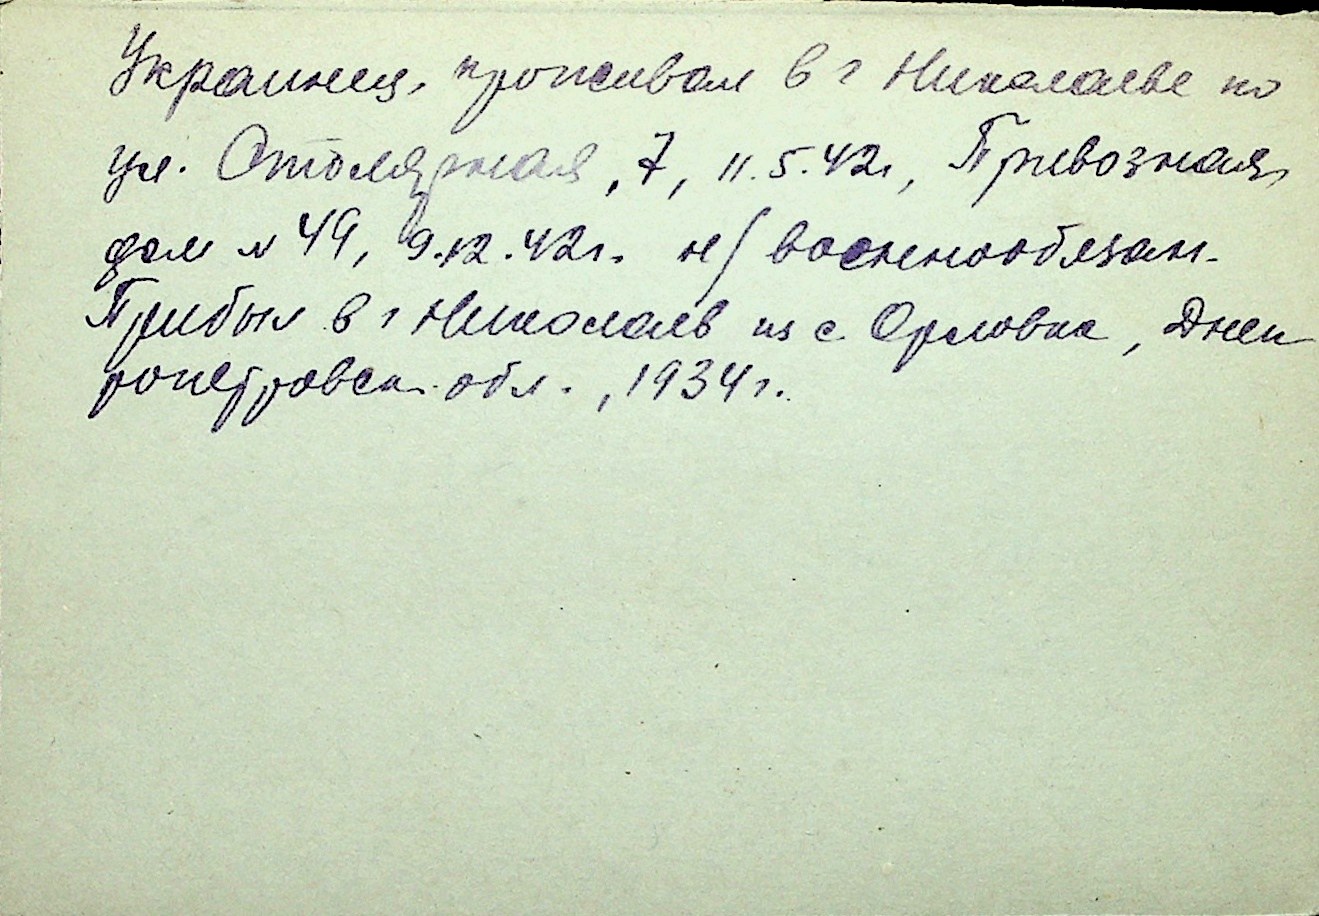 Украинец, проживал в г Николаеве по
ул. Столярная, 7, 11.5.42г, Привозная,
дом № 49, 9.12.42г. н/военнообязан.
Прибыл в г Николаев из с. Орловка, Днеп
ропетровск. обл., 1934г.